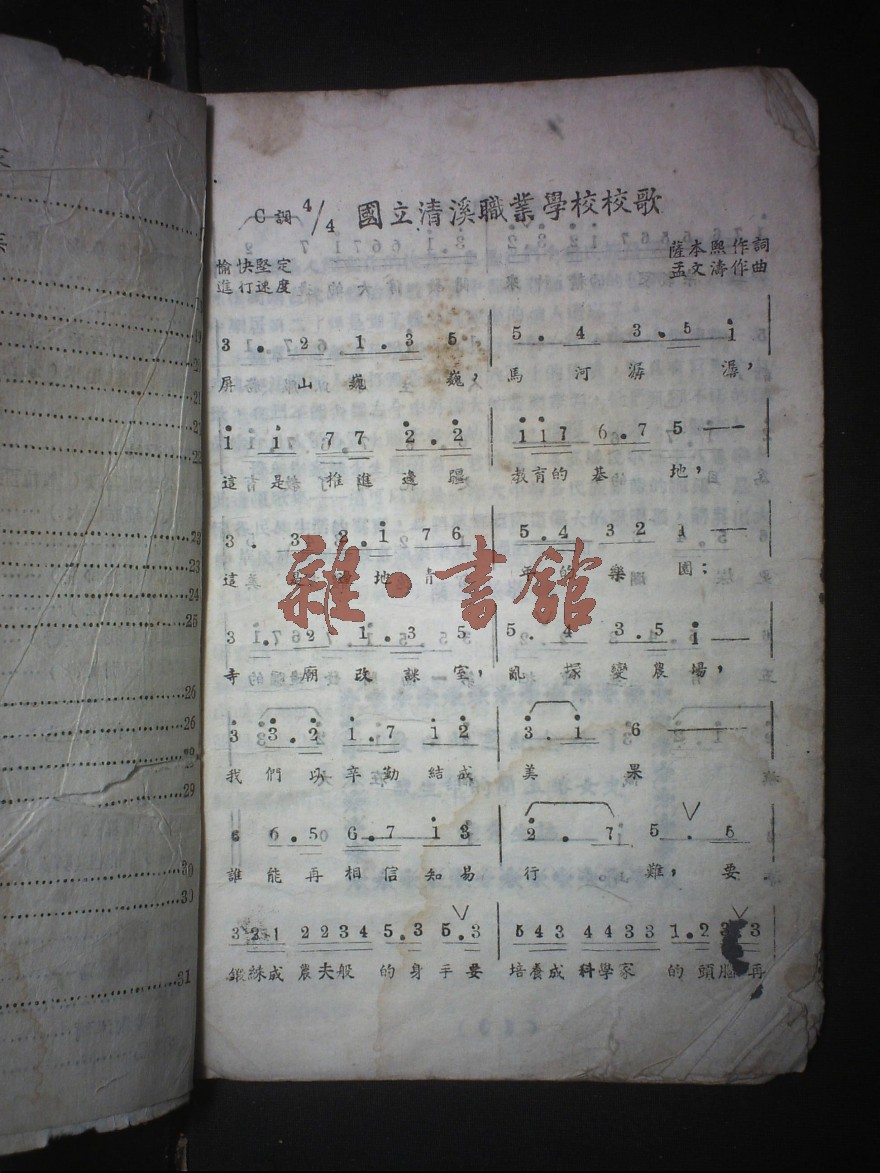 國立清溪職業學校校歌
C調 4/4
薩本熙作詞
孟文濤作曲
愉快堅定
進行速度
3.2 1.3 5, 5.4 3.5 i
屏山巍巍,馬河潺潺,
i i i 7 7 2.2 i i 7 6.7 5 — —
這是推進邊疆教育的基地,
5.4 3 2 1 — —
這 地青年的樂園;
3 i.2 1.3 5 5.4 3.5 i — —
寺廟改課室,亂塚變農場,
3 3.2 i.7 i 2 3.i 6
我們以辛勤結成美果
6 6.5 6.7 i 3 2.7 5.5
誰能再相信知易行難,要
3 2 1 2 2 3 4 5.3 5.3 5 4 3 4 4 3 3 1.2 3 3
鍛練成農夫般的身手要培養成科學家的頭腦再
雜·書館
18
19
20
21
21
22
23
23
24
25
26
26
28
29
30
30
31